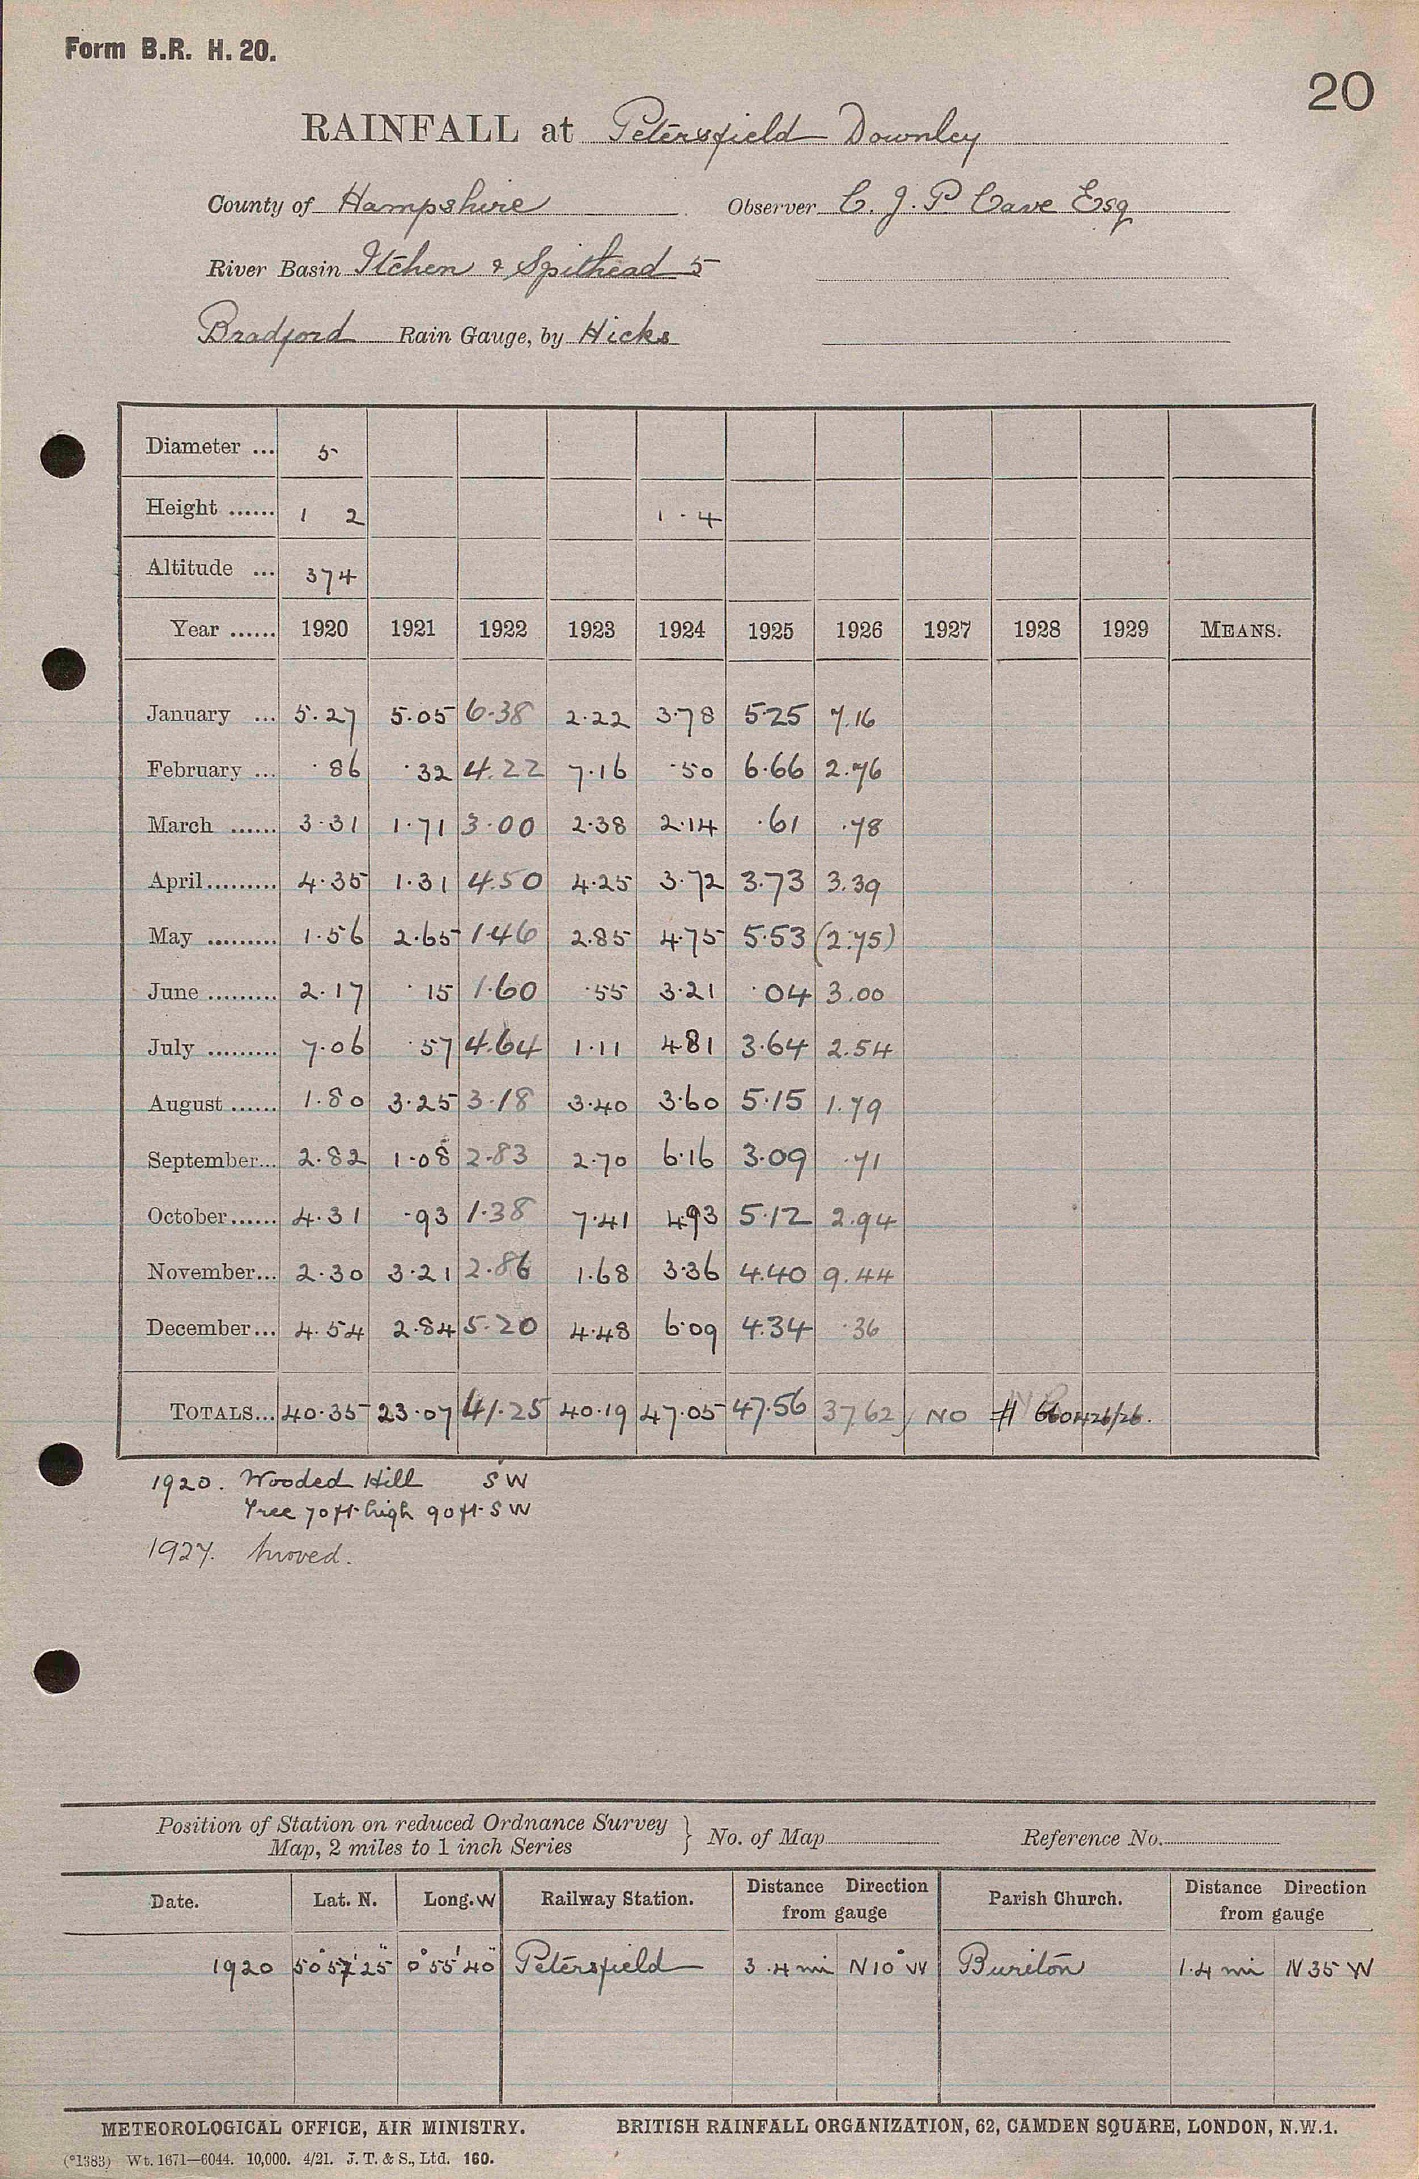 Form B.R. H. 20.
20
RAINFALL at Petersfield Downley
County of Hampshire Observer C. J. P. Cave Esq
River Basin Itchen & Spithead 5
Bradford Rain Gauge, by Hicks
Diameter ... 5
Height ...... 1 2 1 . 4
Altitude ... 374
Year ...... 1920 1921 1922 1923 1924 1925 1926 1927 1928 1929 MEANS.
January ... 5.27 5.05 6.38 2.22 3.78 5.25 7.16
February ... .86 .32 4.22 7.16 .50 6.66 2.76
March ...... 3.31 1.71 3.00 2.38 2.14 .61 .78
April ......... 4.35 1.31 4.50 4.25 3.72 3.73 3.39
May ......... 1.56 2.65 1.46 2.85 4.75 5.53 (2.75)
June ......... 2.17 .15 1.60 .55 3.21 .04 3.00
July ......... 7.06 .57 4.64 1.11 4.81 3.64 2.54
August ...... 1.80 3.25 3.18 3.40 3.60 5.15 1.79
September... 2.82 1.08 2.83 2.70 6.16 3.09 .71
October...... 4.31 .93 1.38 7.41 4.93 5.12 2.94
November... 2.30 3.21 2.86 1.68 3.36 4.40 9.44
December... 4.54 2.84 5.20 4.48 6.09 4.34 .36
TOTALS... 40.35 23.07 41.25 40.19 47.05 47.56 37.62 NO
1920. Wooded Hill SW
Tree 70ft. high 90ft. SW
1927. Moved.
Position of Station on reduced Ordnance Survey
Map, 2 miles to 1 inch Series } No. of Map Reference No.
Date. Lat. N. Long. W Railway Station. Distance Direction from gauge Parish Church. Distance Direction from gauge
1920 50° 57' 25" 0° 55' 40" Petersfield 3.4 mi N 10° W Buriton 1.4 mi N 35 W
METEOROLOGICAL OFFICE, AIR MINISTRY. BRITISH RAINFALL ORGANIZATION, 62, CAMDEN SQUARE, LONDON, N.W.1.
(*1383) Wt. 1671—6044. 10,000. 4/21. J. T. & S., Ltd. 160.